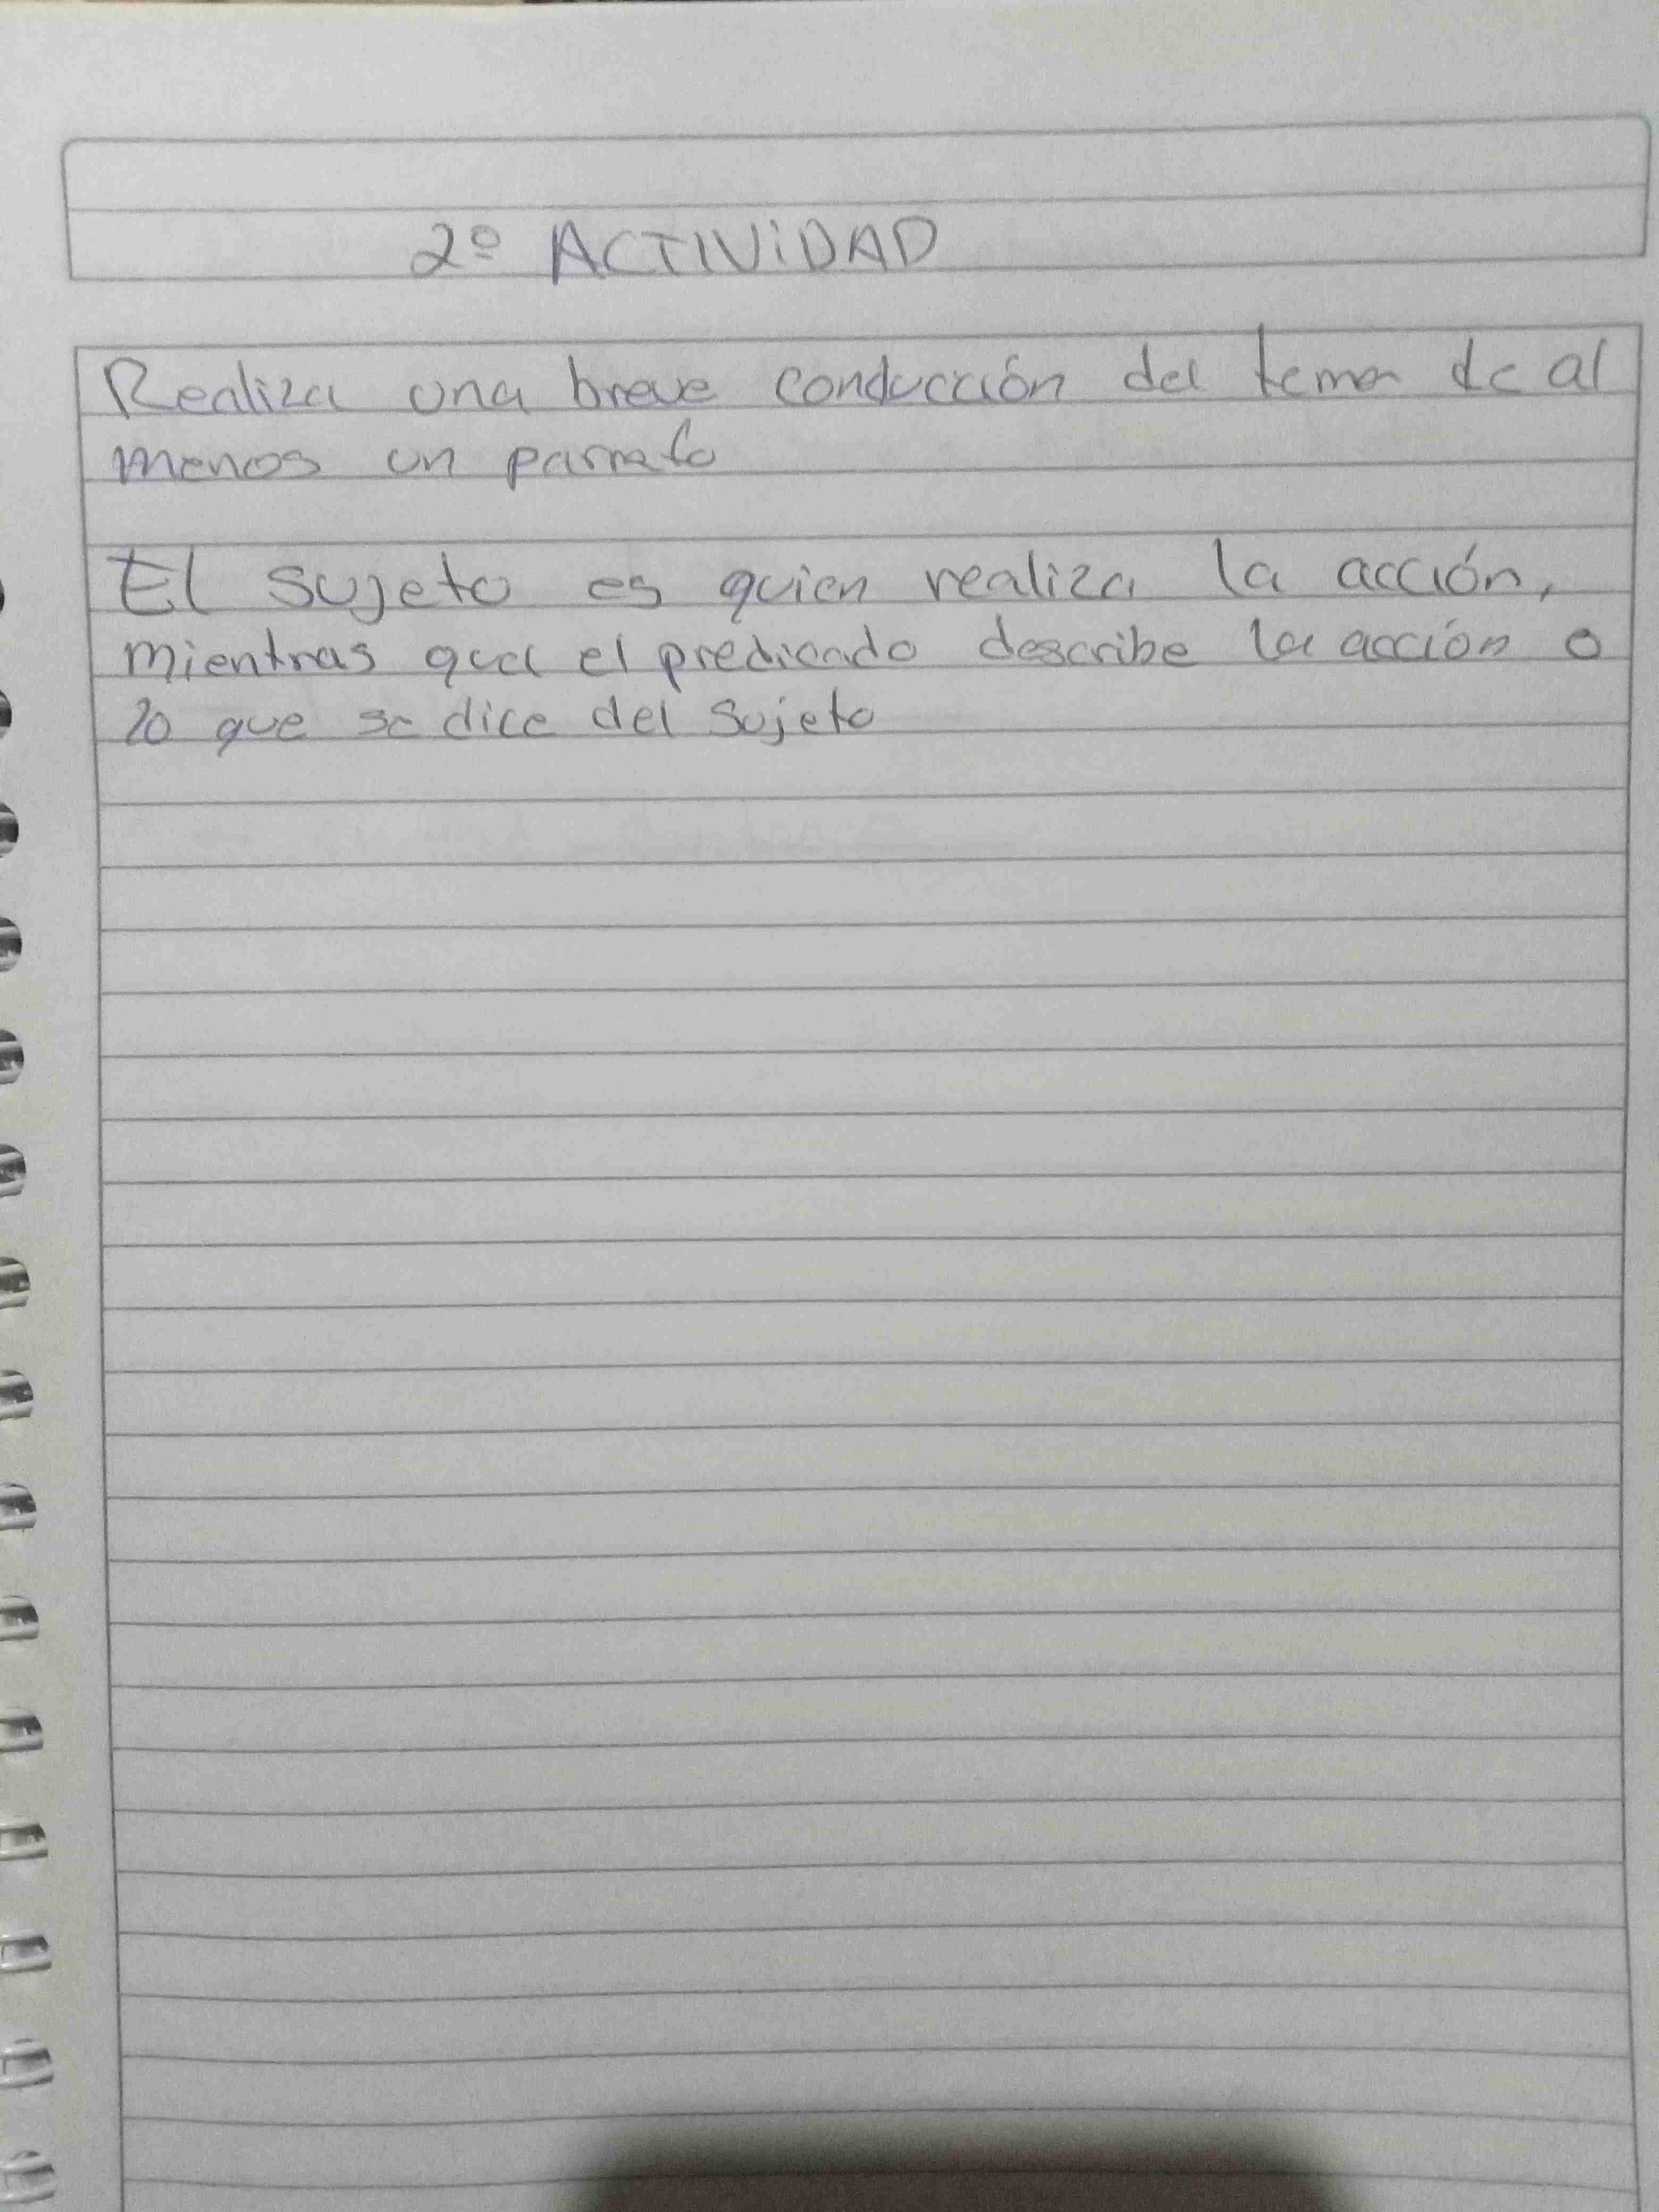 2º ACTIVIDAD
Realiza una breve conducción del tema de al
menos un parrafo
El sujeto es quien realiza la acción,
mientras que el predicado describe la acción o
lo que se dice del sujeto